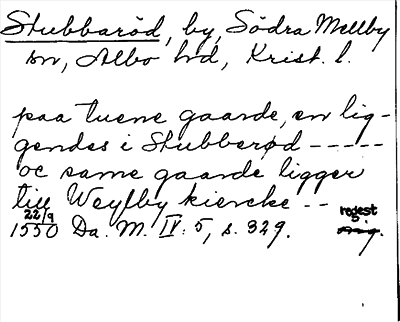 Stubbaröd, by, Södra Mellby
sn, Albo hd, Krist. l.
paa tuene gaarde, en lig-
gendes i Stubberød -----
oc same gaarde ligger
till Weyflby kiercke --
22/9
1550 Da. M. IV: 5, s. 329.
regest